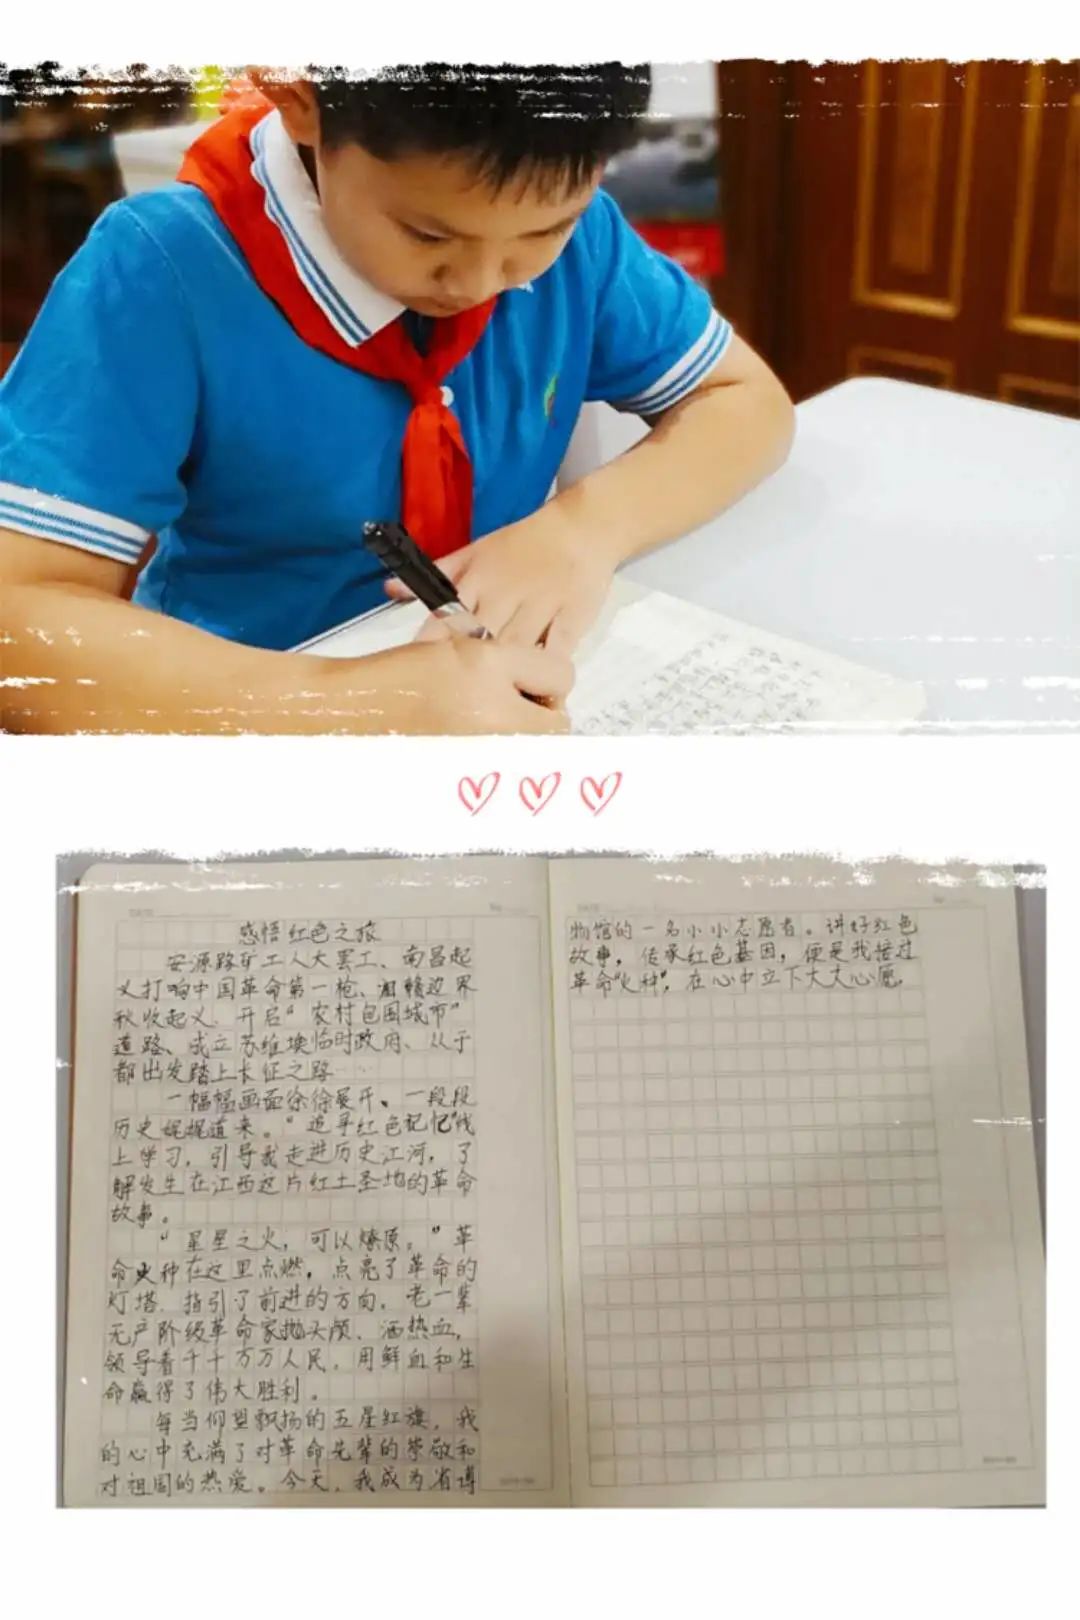 感悟红色之旅
安源路矿工人大罢工、南昌起
义打响中国革命第一枪、湘赣边界
秋收起义、开启“农村包围城市”
道路、成立苏维埃临时政府、从于
都出发踏上长征之路……
一幅幅画面徐徐展开、一段段
历史娓娓道来。“追寻红色记忆”线
上学习，引导我走进历史江河，了
解发生在江西这片红土圣地的革命
故事。
“星星之火，可以燎原。”革
命火种在这里点燃，点亮了革命的
灯塔，指引了前进的方向，老一辈
无产阶级革命家抛头颅、洒热血，
领导着千千万万人民，用鲜血和生
命赢得了伟大胜利。
每当仰望飘扬的五星红旗，我
的心中充满了对革命先辈的崇敬和
对祖国的热爱。今天，我成为省博
物馆的一名小小志愿者。讲好红色
故事，传承红色基因，便是我接过
革命“火种”，在心中立下大大心愿。